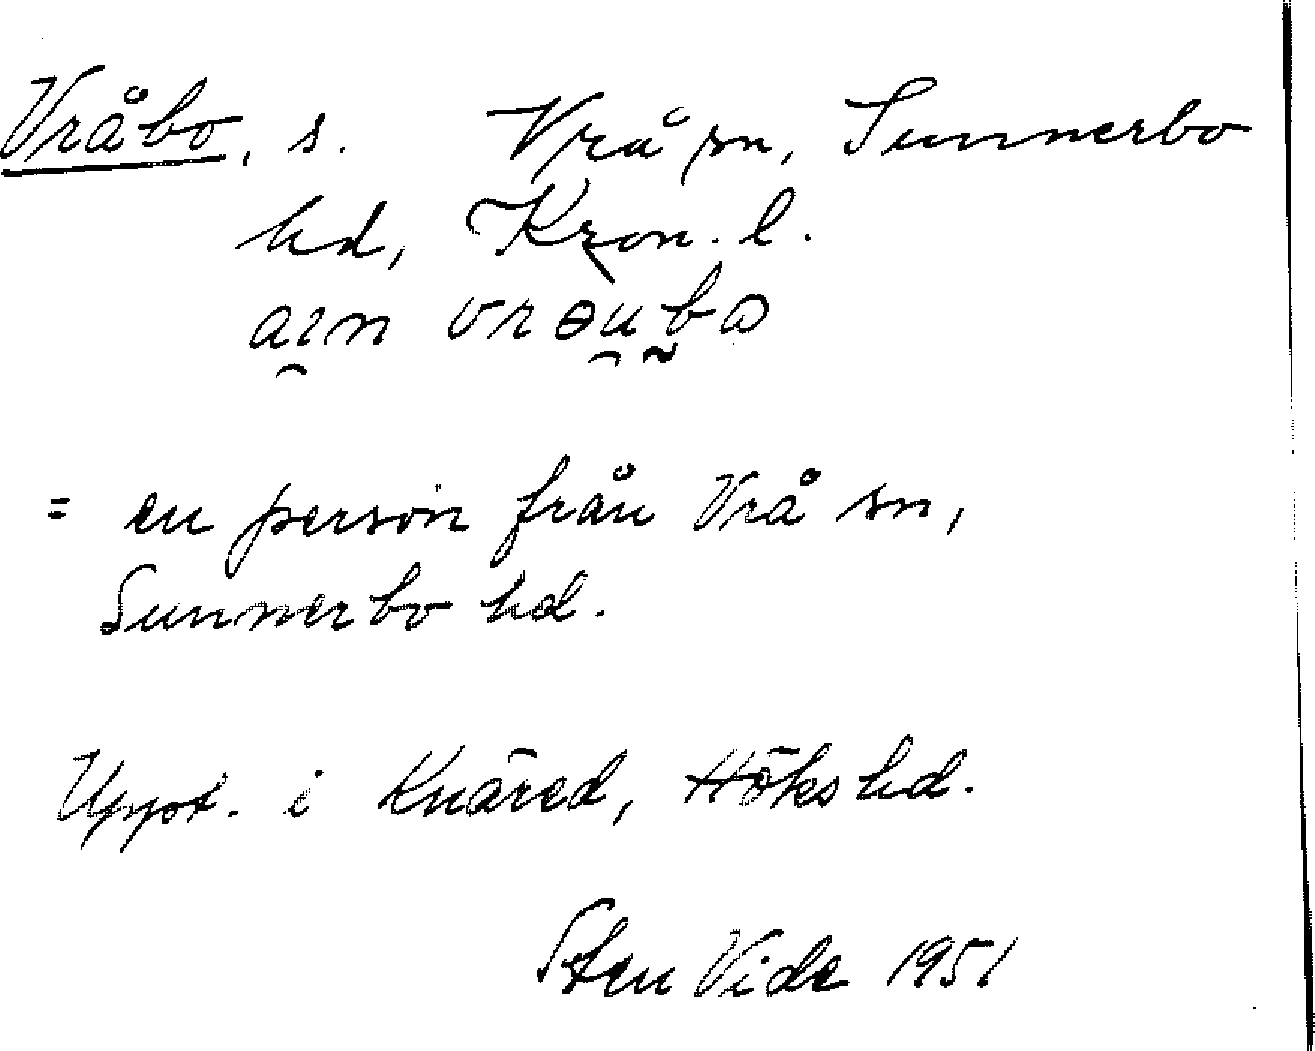 Vråbo, s. Vrå sn, Sunnerbo
hd, Kron. l.
aın vrəuba
= en person från Vrå sn,
Sunnerbo hd.
Uppt. i Knäred, Höks hd.
Sten Vide 1951